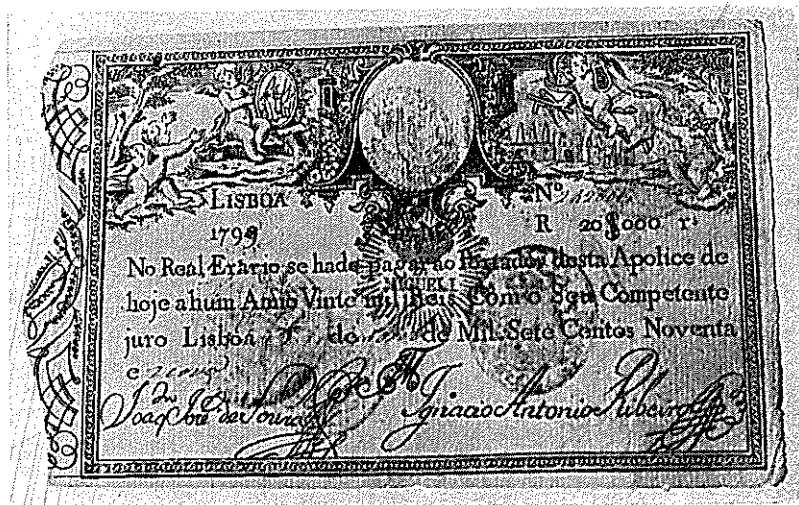 LISBOA
Nº
1799
R 20$000 rˢ
No Real Erario se hade pagar ao Portador desta Apolice de
MIGUEL I.
hoje a hum Anno Vinte mil Reis Com o Seu Competente
juro Lisboa de Mil Sete Centos Noventa
e
Joaq José de Souza
Ignacio Antonio Ribeiro